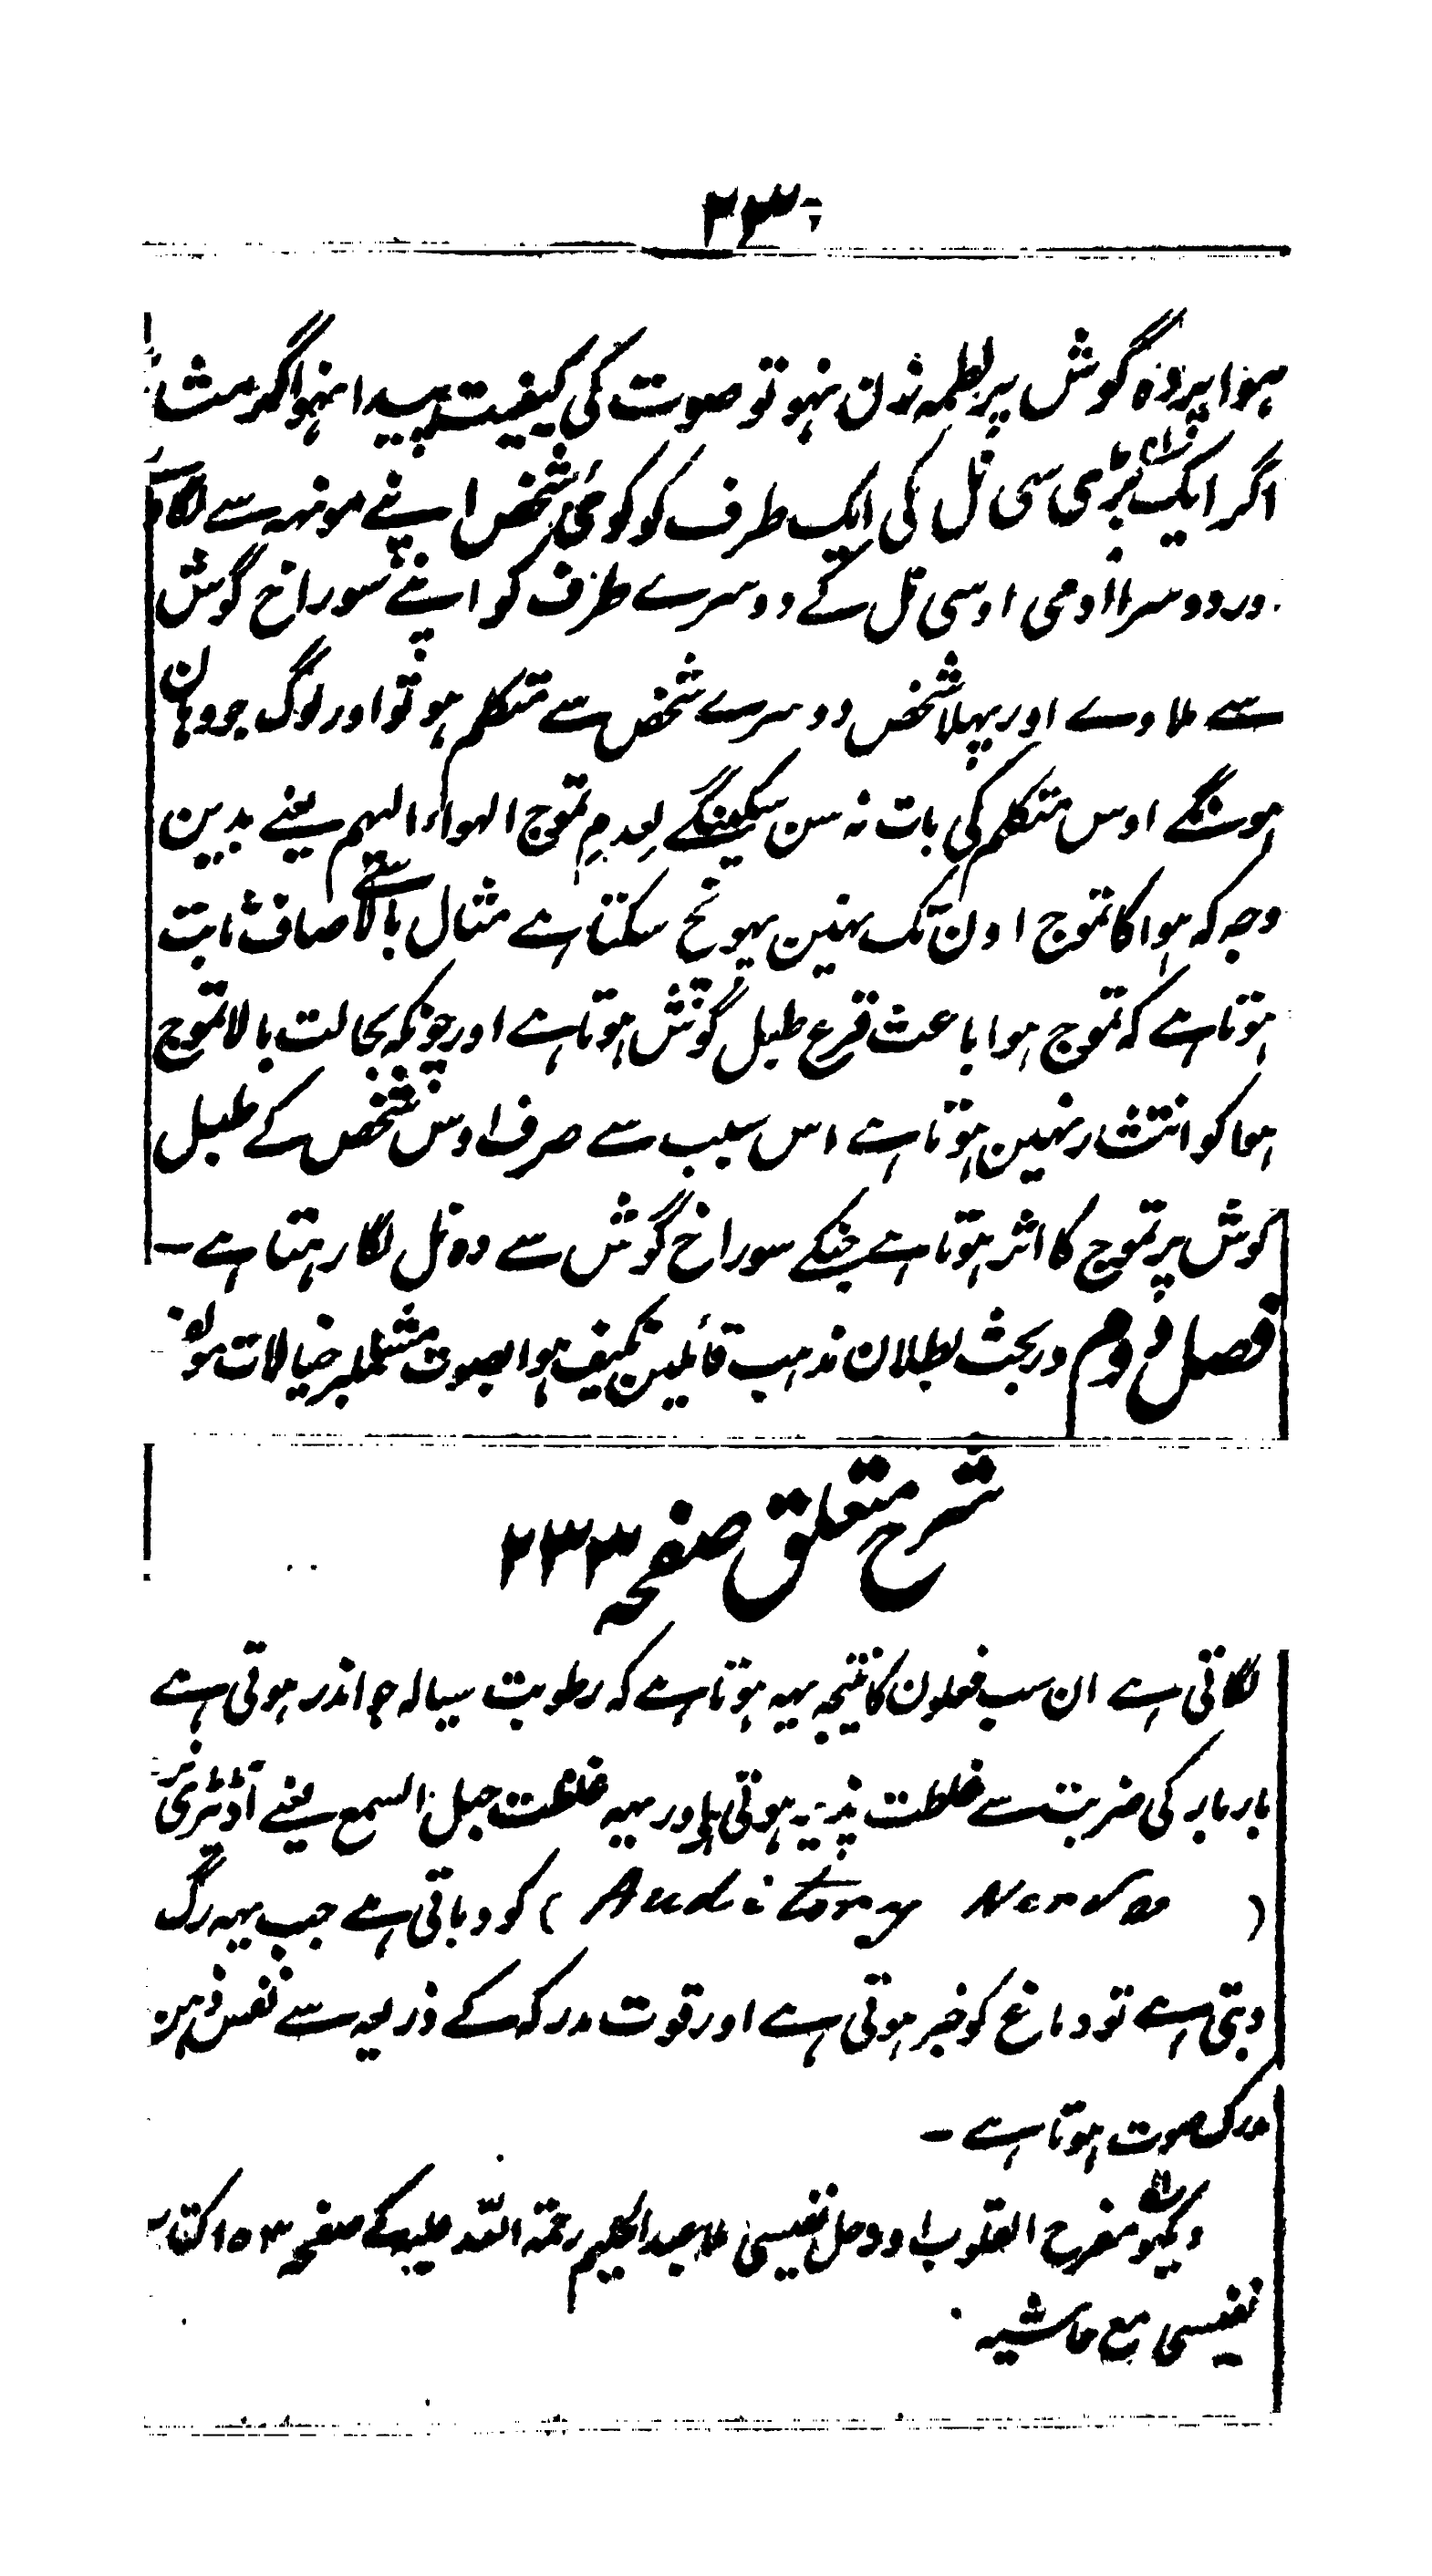 ۲۳
ہوا پردہ گوش پر لطمہ زن نہو تو صوت کی کیفیت پیدا نہو اگر
اگر ایک بڑی سی نل کی ایک طرف کو کوئی شخص اپنے مونہہ سے لگا
اور دوسرا آدمی اوسی نل کے دوسرے طرف کو اپنے سوراخ گوش
سے ملاوے اور پہلا شخص دوسرے شخص سے متکلم ہو تو اور لوگ جو وہان
ہونگے اوس متکلم کی بات نہ سن سکینگے لعدمِ تموج الہواء الیہم یعنے بدین
وجہ کہ ہوا کا تموج اون تک نہین پہونچ سکتا ہے مثال بالا سے صاف ثابت
ہوتا ہے کہ تموج ہوا باعث قرع طبل گوش ہوتا ہے اور چونکہ بحالت بالا تموج
ہوا کو انتشار نہین ہوتا ہے اس سبب سے صرف اوس شخص کے طبل
گوش پر تموج کا اثر ہوتا ہے جنکے سوراخ گوش سے وہ نل لگا رہتا ہے ۔
فصل دوم در بحث بطلان مذہب قائلین تکیف ہوا بصوت مشتملبر خیالات مولف
شرح متعلق صفحہ ۲۳۳
لگاتی ہے ان سب فعلون کا نتیجہ یہہ ہوتا ہے کہ رطوبت سیالہ جو اندر ہوتی ہے
بار بار کی ضربت سے غلظت پذیر ہوتی ہے اور یہہ غلظت حبل السمع یعنے آڈٹری نرو
( Auditory Nerve ) کو دباتی ہے جب یہہ رگ
دبتی ہے تو دماغ کو خبر ہوتی ہے اور قوت مدرکہ کے ذریعہ سے نفس ذہن
مدرک صوت ہوتا ہے ۔
دیکہو مفرح القلوب اور حل نفیسی ملا عبدالحلیم رحمۃ اللہ علیہ کے صفحہ ۱۵۳ کتاب
نفیسی مع حاشیہ